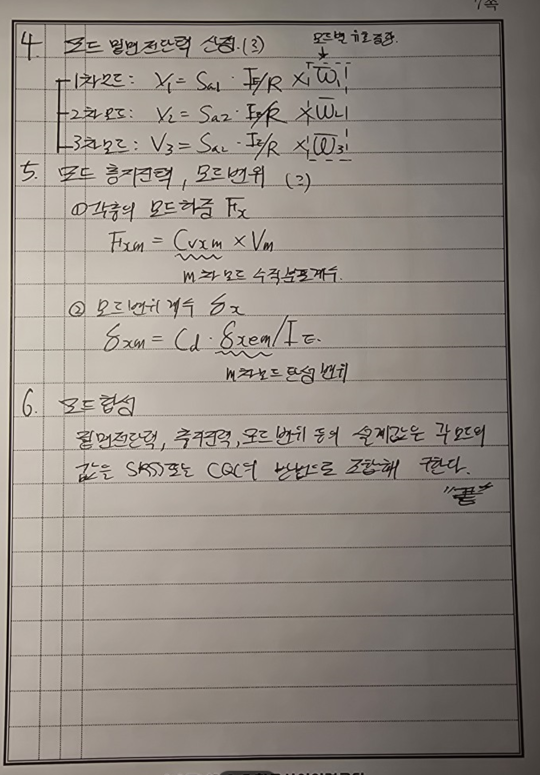 7쪽
4. 모드 밑면전단력 산정. (3) 모드별 유효중량
1차모드 : V₁ = Sa1 · IE/R × W̅₁
2차모드 : V₂ = Sa2 · IE/R × W̅₂
3차모드 : V₃ = Sa2 · IE/R × W̅₃
5. 모드 층지진력, 모드변위 (2)
① 각층의 모드하중 Fx
Fxm = Cvxm × Vm
m차 모드 수직분포계수.
② 모드변위 계수 δx
δxm = Cd · δxem / IE.
m차모드 탄성 변위
6. 모드합성
밑면전단력, 층지진력, 모드변위 등의 설계값은 각 모드의
값은 SRSS 또는 CQC의 방법으로 조합해 구한다.
"끝"